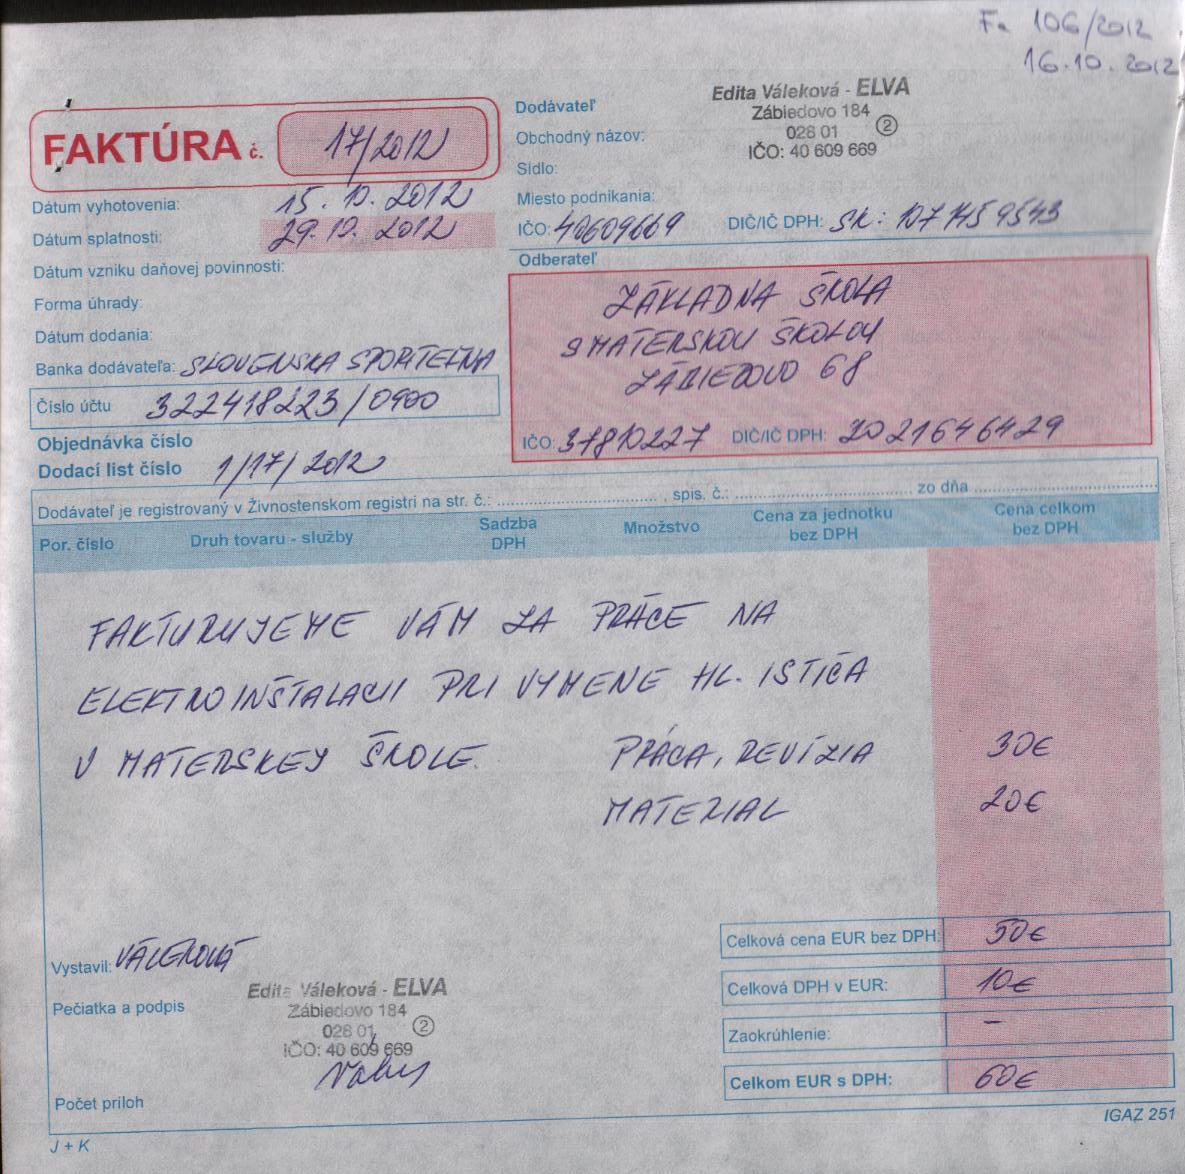 Fa 106/2012
16.10.2012
FAKTÚRA č. 17/2012
Dátum vyhotovenia: 15.10.2012
Dátum splatnosti: 29.10.2012
Dátum vzniku daňovej povinnosti:
Forma úhrady:
Dátum dodania:
Banka dodávateľa: SLOVENSKA SPORITEĽŇA
Číslo účtu 322418223/0900
Objednávka číslo
Dodací list číslo 1/17/2012
Dodávateľ
Edita Váleková - ELVA
Zábiedovo 184
028 01 2
IČO: 40 609 669
Obchodný názov:
Sídlo:
Miesto podnikania:
IČO: 40609669 DIČ/IČ DPH: SK: 1071459543
Odberateľ
ZÁKLADNA ŠKOLA
S MATERSKOU ŠKOLOU
ZÁBIEDOVO 68
IČO: 37810227 DIČ/IČ DPH: 2021646429
Dodávateľ je registrovaný v Živnostenskom registri na str. č.: , spis. č.: zo dňa
Por. číslo Druh tovaru - služby Sadzba DPH Množstvo Cena za jednotku bez DPH Cena celkom bez DPH
FAKTURUJEME VÁM ZA PRÁCE NA
ELEKTROINŠTALACII PRI VYMENE HL. ISTIČA
V MATERSKEJ ŠKOLE. PRÁCA, REVÍZIA 30€
MATERIAL 20€
Celková cena EUR bez DPH: 50€
Celková DPH v EUR: 10€
Zaokrúhlenie: –
Celkom EUR s DPH: 60€
Vystavil: VÁLEKOVÁ
Pečiatka a podpis
Edita Váleková - ELVA
Zábiedovo 184
028 01 2
IČO: 40 609 669
Počet príloh
J + K
IGAZ 251